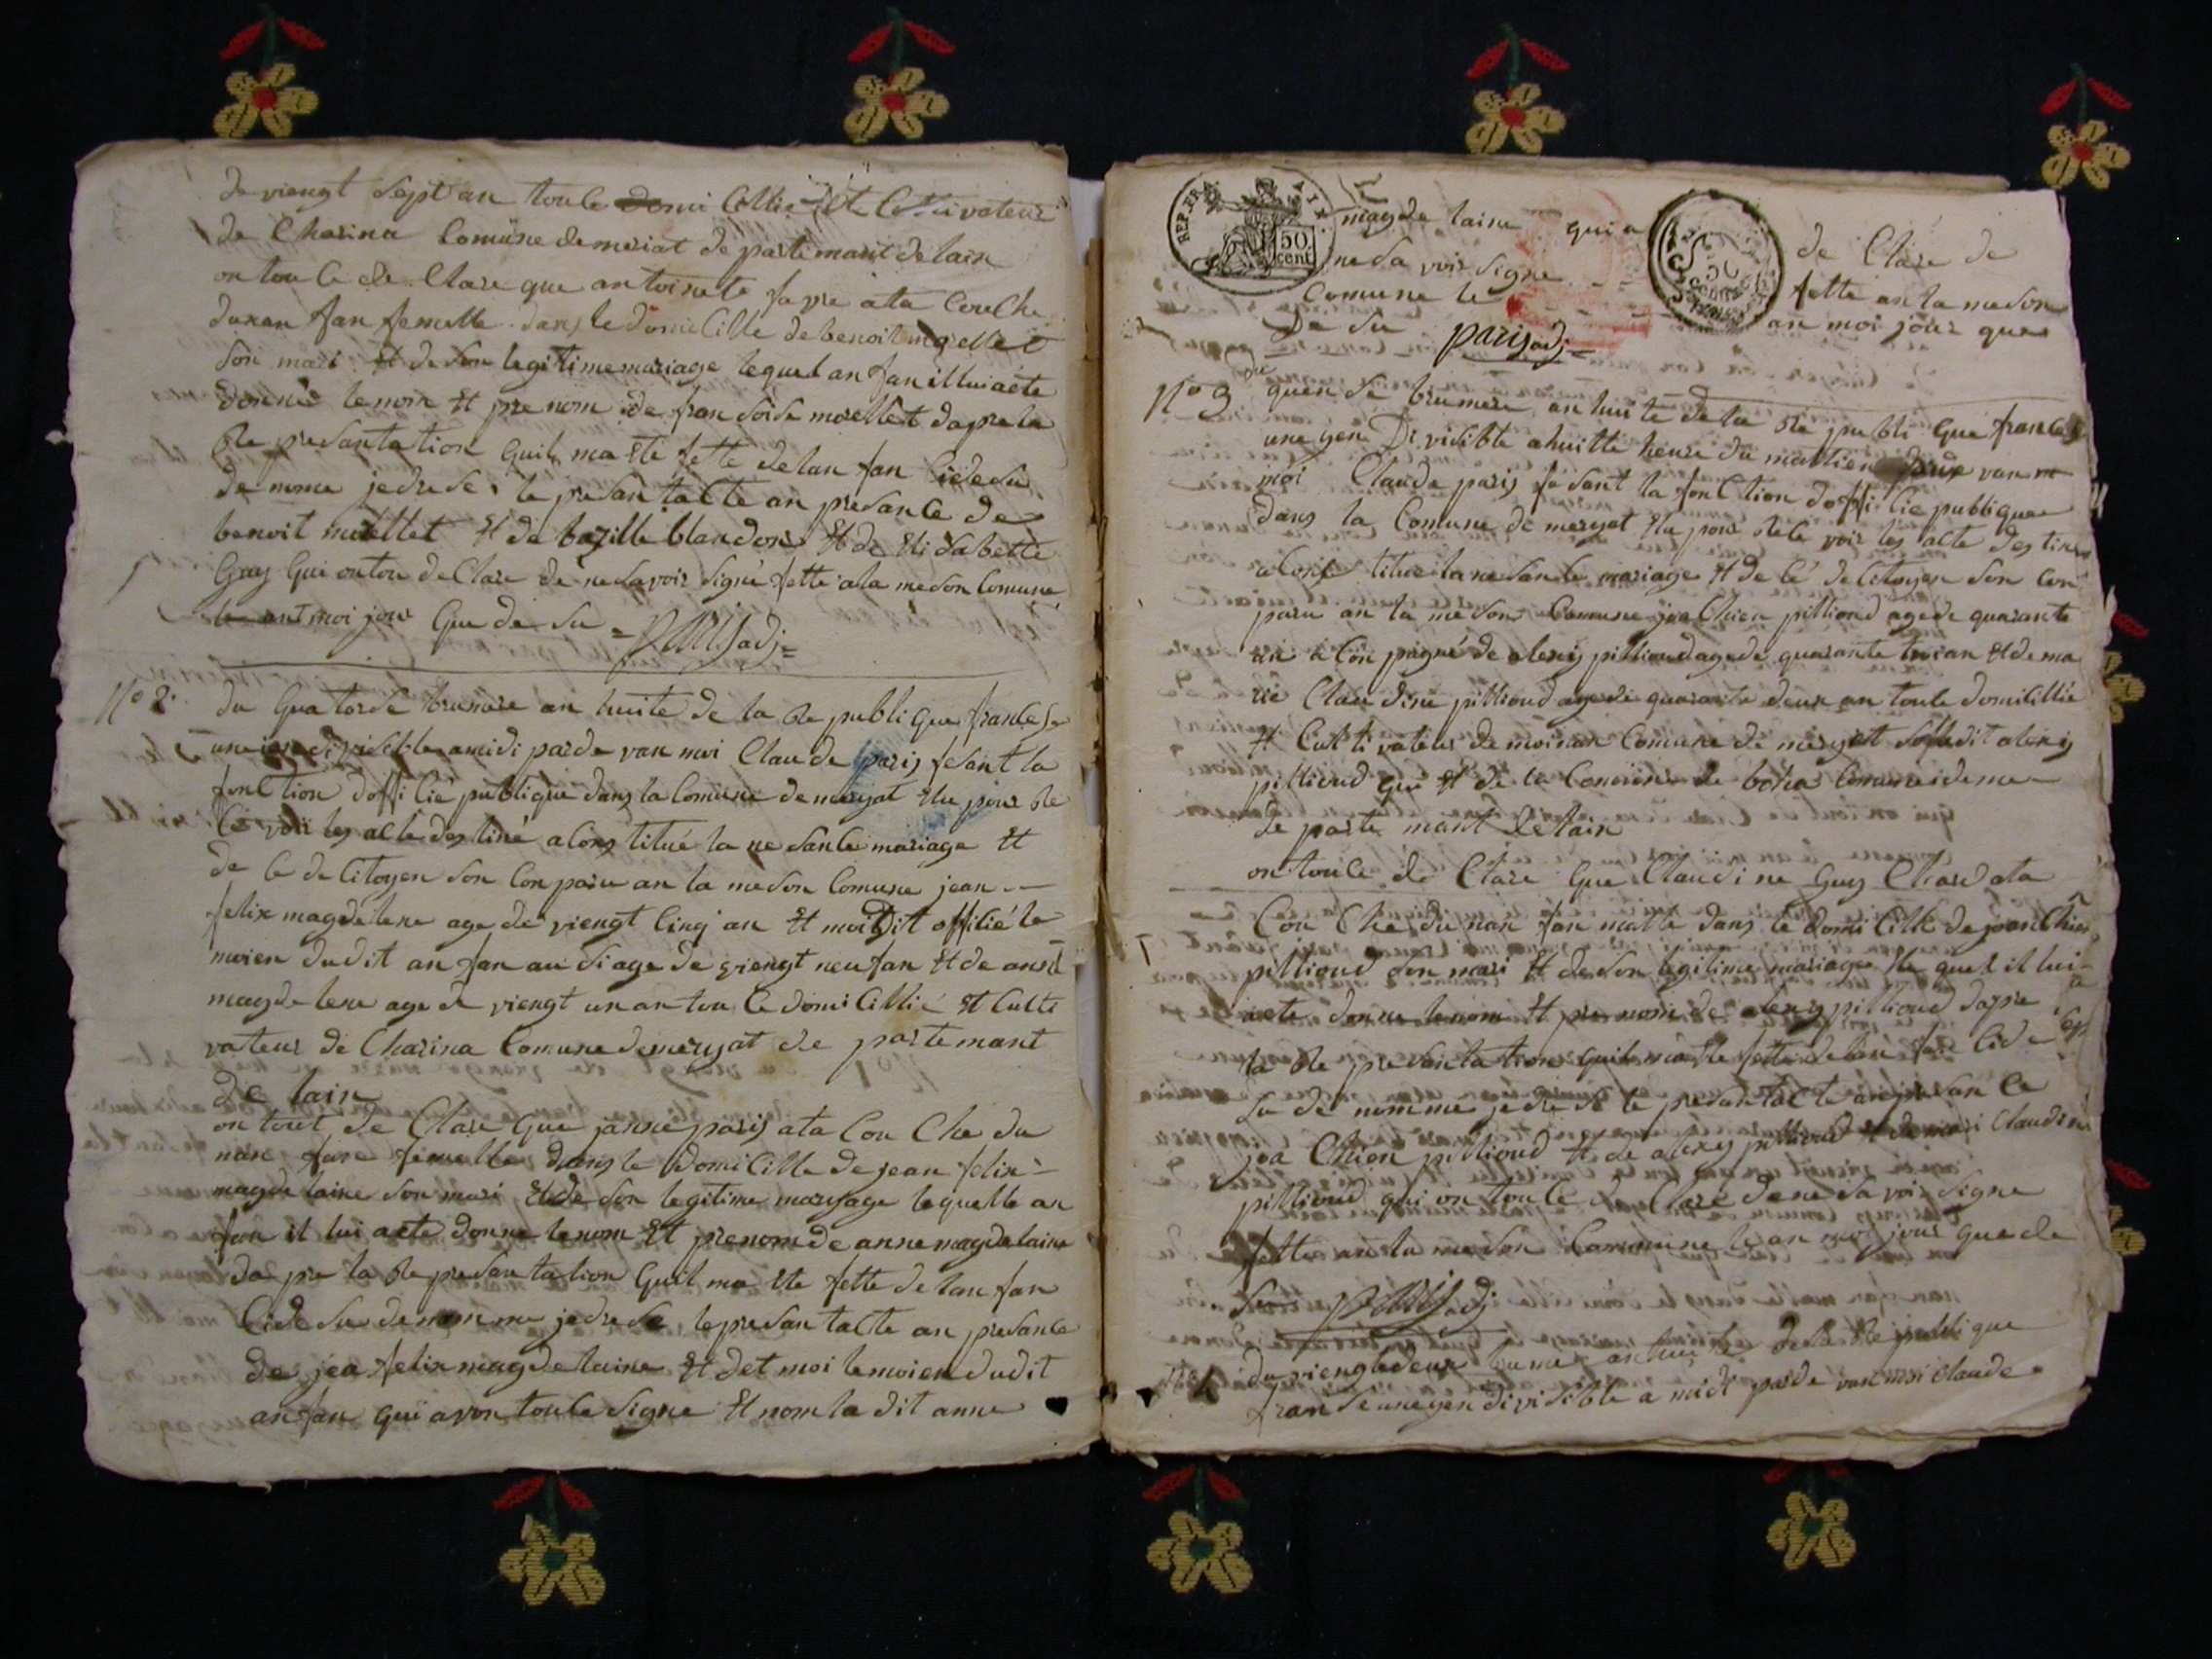 de viengt Sept an toule domi Cillie Et Cultivateur
de Charina Comüne de meriat de partemant de lain
on toule de Clare que antoinete favre ata Couche
dunan fan femelle dans le domi Cille de benoit morellet
Son mari Et de Son legitime mariage lequel an fan il lui a ete
donné le nom Et prenom de fran Soise morellet dapre la
Re presantation quil ma Ete fette de lan fan Cide Su
de nome je drese le presantacte an presance de
benoit morellet Et de bazille blandon Et de Eli Sabette
Guy Qui on tou de Clare de ne Savoir Signé fette a la meson Comune
le ant moi jour Que de Su = Paris adj =
N° 2. du Quatorse brumere an huite de la Re publi Que francese
une ien divisible a midi par de van moi Claude paris fesant la
fonCtion doffi Cié publique dans la Comune de meryat Elu pour Re
Ce voir les acte destiné a Constitué la ne Sance mariage Et
de Ce de Citoyen Son Conparu an la meson Comune jean
felix magdelene age de viengt Cinq an Et moi Dit offilié le
moien du dit an fan au Si age de viengt neuf an Et de anne
magdelene age de viengt un an tou Ce domi Cillié Et Culti
vateur de Charina Comune de meryat de partemant
de lain
on tout de Clare Que janne paris ata Cou Che du
nan fan femelle dans le domi Cille de jean felix
magdelaine Son mari Et de Son legitime maryage lequelle an
fan il lui a ete donne le nom Et prenom de anne magdelaine
da pre la Re presantation Quil ma Ete fette de lan fan
Cide Su de nomme je drese le presantacte an presance
de jea felix magdelaine Et det moi le moien du dit
an fan qui avon toule Signe Et nom la dit anne
REP. FRA.
50 cent
magdelaine qui a de Clare de
ne Sa voir Signe fette an la meson
Comune le an moi jour que
De Su Paris adj =
N° 3 du quen Se brumere an huite de la Re publi Que francese
une yen Di visible a huitte heure du mattien par de van
moi Claude paris fesant la fonCtion doffi Cie publique
dans la Comune de meryat Elu pour Re Ce voir les acte destine
a Constitue la ne Sance mariage Et de Cé de Citoyen Son Con
paru an la meson Comune joa Chien pillioud age de quarante
an a Con pagné de alexis pillioud age de quarante troi an Et de ma
rie Claudine pillioud age de quarante deux an toule domicillié
Et Cultivateur de moinan Comune de meryat Sof le dit alexis
pillioud qui Et de la Comüne de boha
de parte mant de lain
on toule de Clare Que Claudine Guy Chard ata
Cou Che du nan fan malle dans le domi Cille de joa Chien
pillioud Son mari Et de Son legitime mariage le quel il lui a
ete donne le nom Et prenom de alexis pillioud dapre
la Re presantation quil ma Ete fette de lan fan Cide
Su de nomme je dre Se le presantacte an presan Ce
joa Chien pillioud Et de alexis pillioud Et de mari Claudine
pillioud qui on toule de Clare de ne Sa voir Signe
fette an la meson Commune le an moi jour que de
Su Paris adj
N° 4 du viengt deux brume an huite de la Re publique
fran Se une yen divisible a midi par de van moi Claude